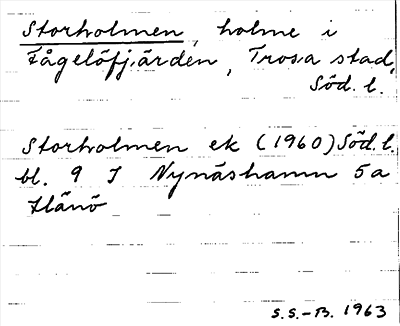 Storholmen, holme i
Fågelöfjärden, Trosa stad,
Söd. l.
Storholmen ek (1960) Söd. l.
bl. 9 I Nynäshamn 5a
Hånö
S.S.-B. 1963